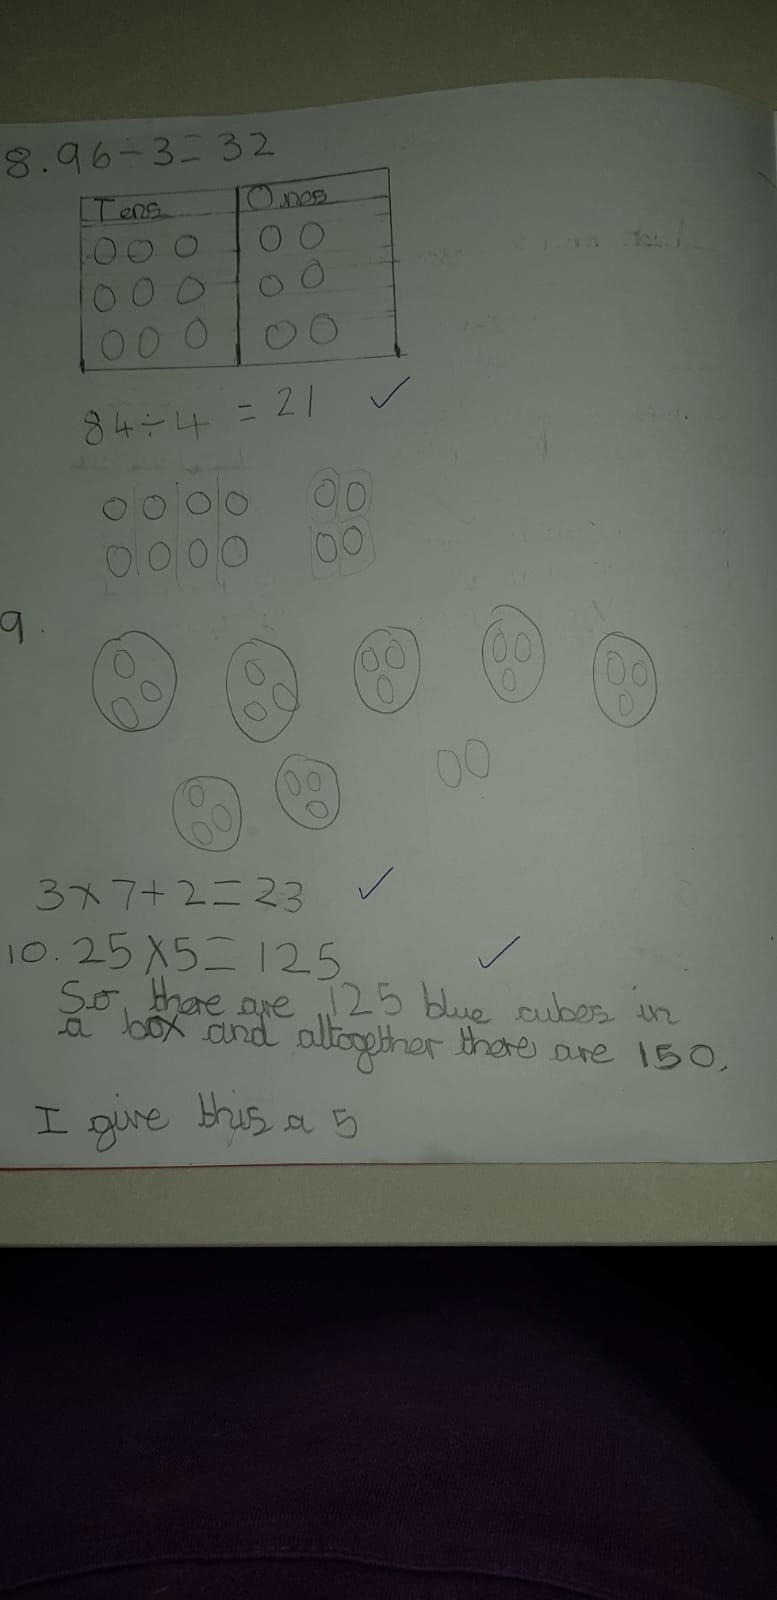 8. 96 ÷ 3 = 32
Tens Ones
84 ÷ 4 = 21
9.
3 × 7 + 2 = 23
10. 25 × 5 = 125
So there are 125 blue cubes in
a box and altogether there are 150.
I give this a 5